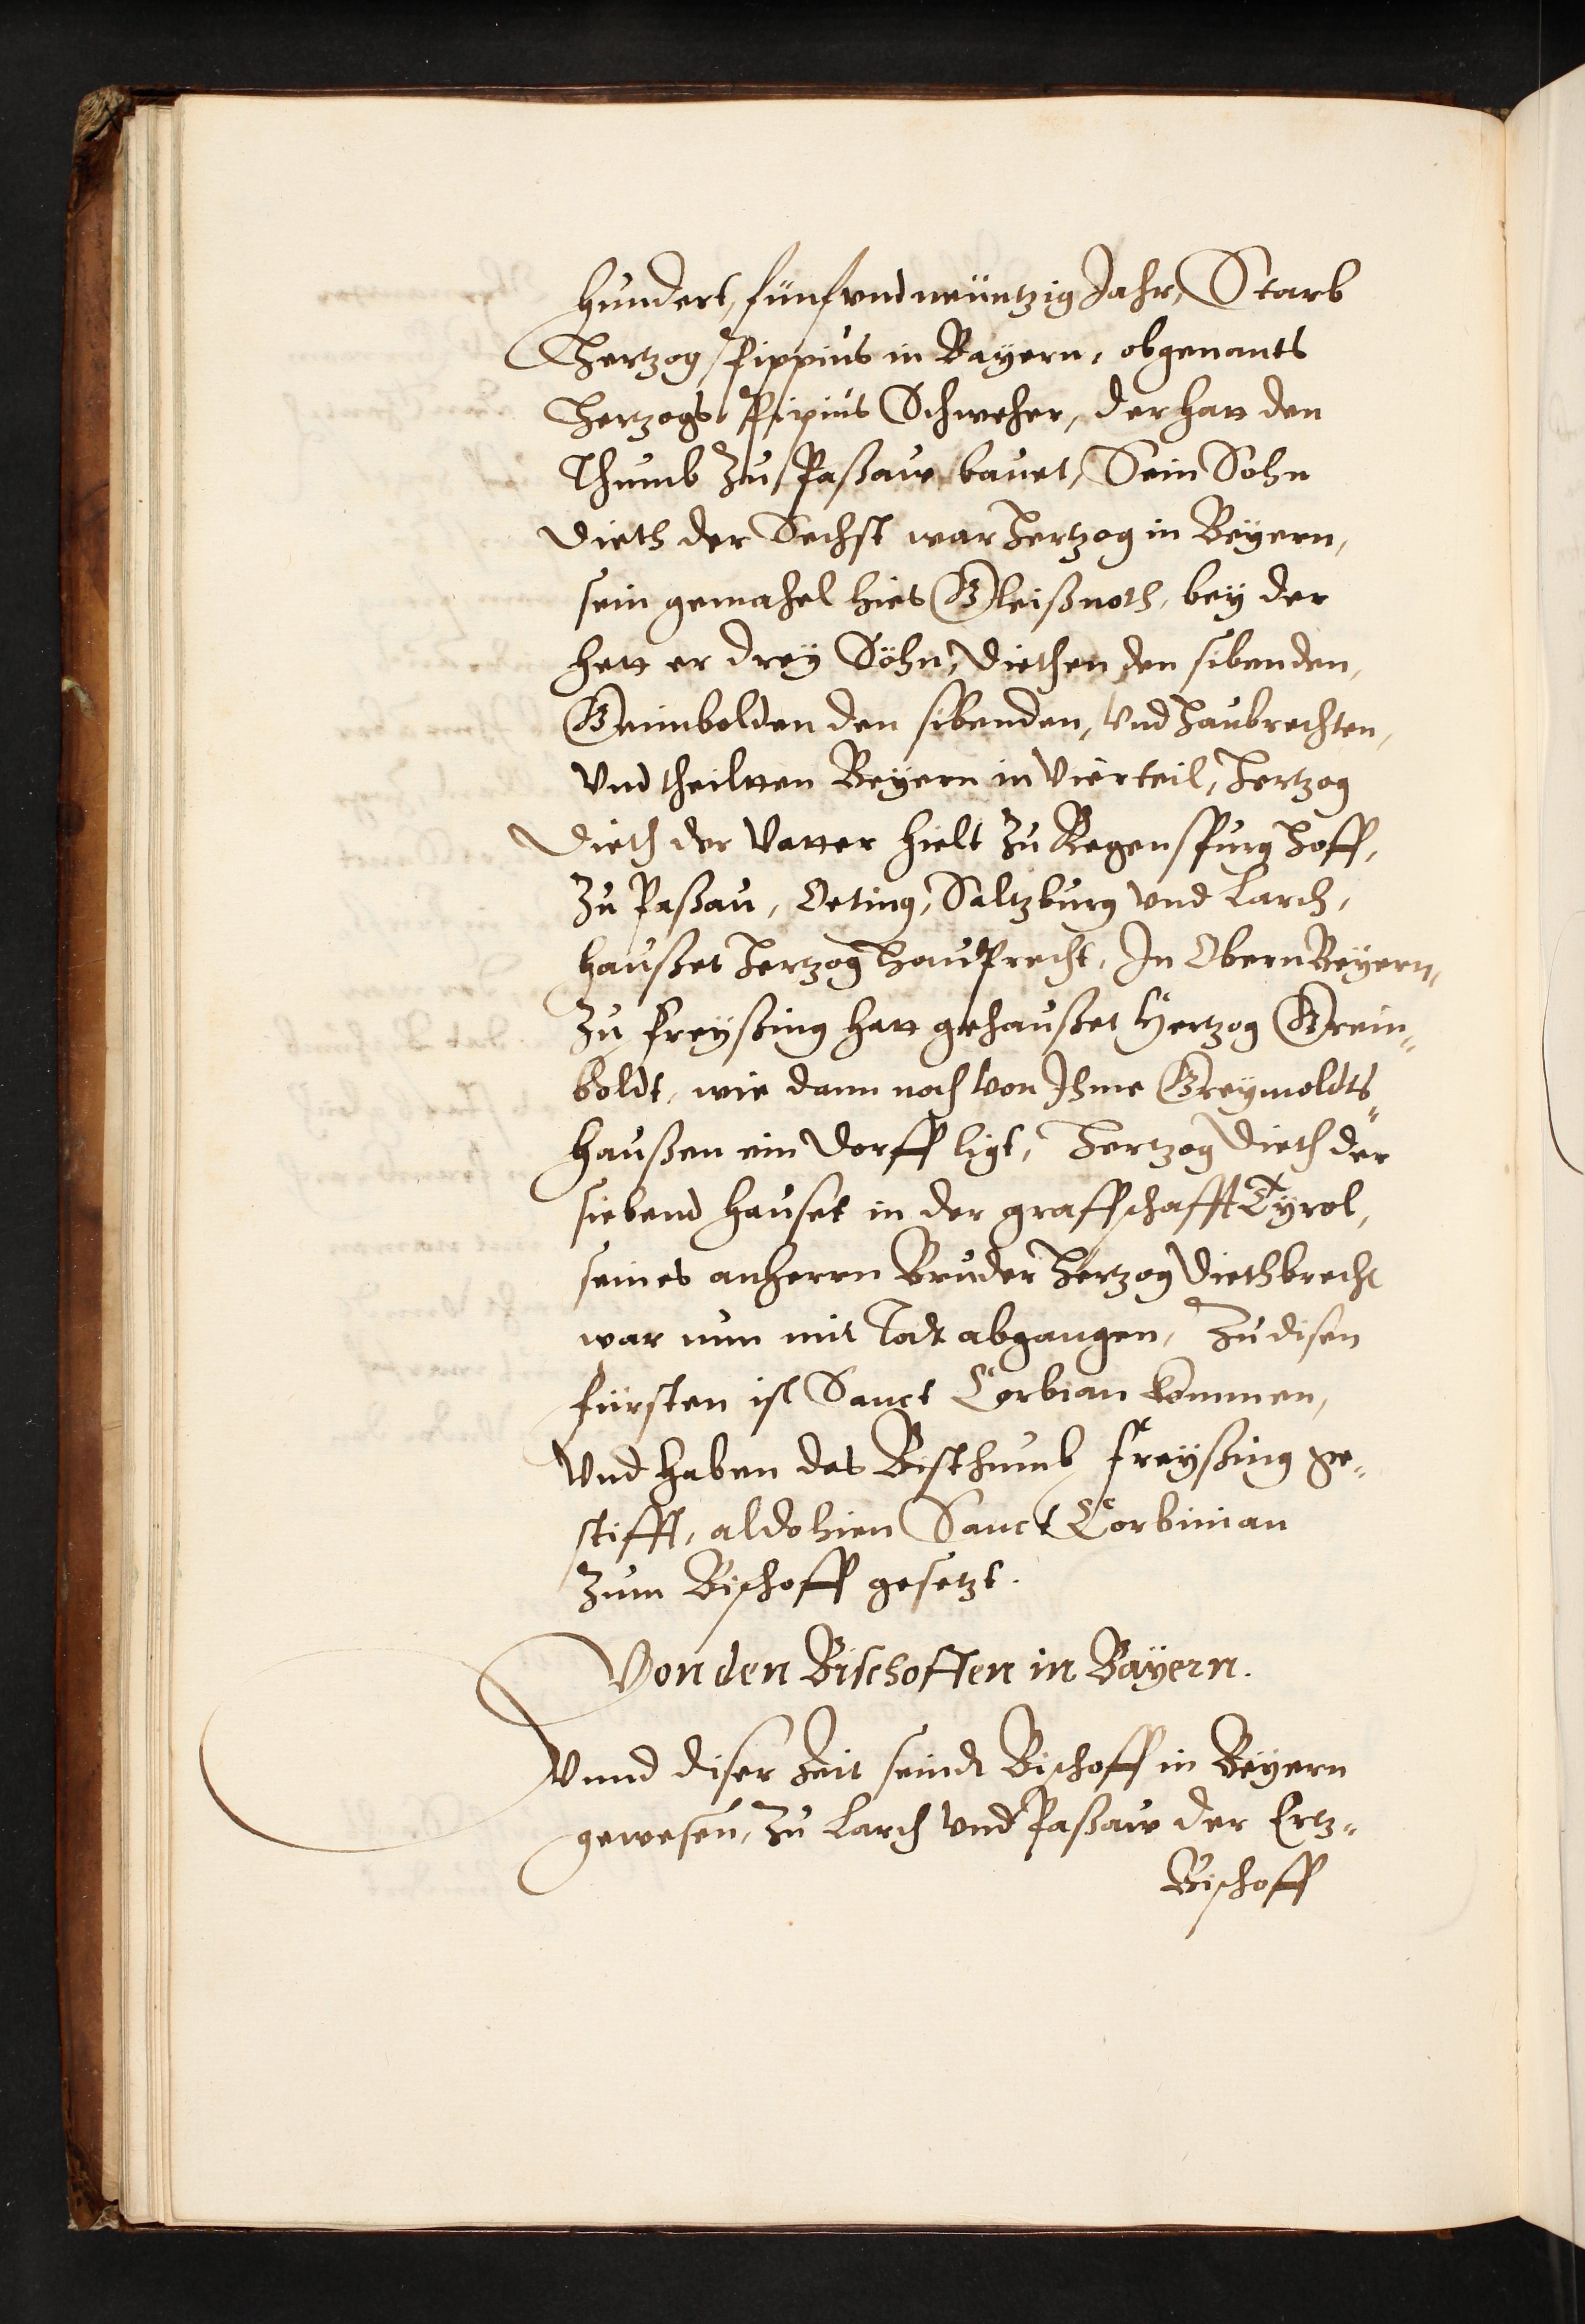 hundert, fünfvndneüntzig Jahr, Starb
Hertzog Pippius in Bayern, obgenants
Hertzogs Pipius Schweher, der hatt den
Thumb Zu Paßaw bauet, Sein Sohn
Dieth der Sechst war Hertzog in Beyern,
sein gemahel hies Gleißnoth, bey der
hett er drey Söhn, Diethen den sibenden,
Grimbolden den sibenden, Vnd Haubrechten,
Vnd theiltten Beyern in Vier teil, Hertzog
Dieth der Vatter hielt Zu Regenspurg Hoff,
Zu Paßau, Oeting, Saltzburg Vnd Larch,
haußet Hertzog Hauprecht, In Obern Beyern,
Zu Freyßing hatt gehaußet Hertzog Grein„
boldt, wie dann noch Von Ihme Greymoldts„
haußen ein Dorff ligt, Hertzog Dieth der
siebend hauset in der graffschafft Tyrol,
seines anherrn Bruder Hertzog Diethbrecht
war nun mit Todt abgangen, Zu disen
fürsten ist Sanct Corbian kommen,
Vnd haben das Bisthumb Freyßing ge„
stifft, aldohien Sanct Corbinian
Zum Bischoff gesetzt.
Von den Bischoffen in Bayern.
Vmd diser Zeit seindt Bischoff in Beyern
gewesen, Zu Larch Vnd Paßaw der Ertz„
Bischoff